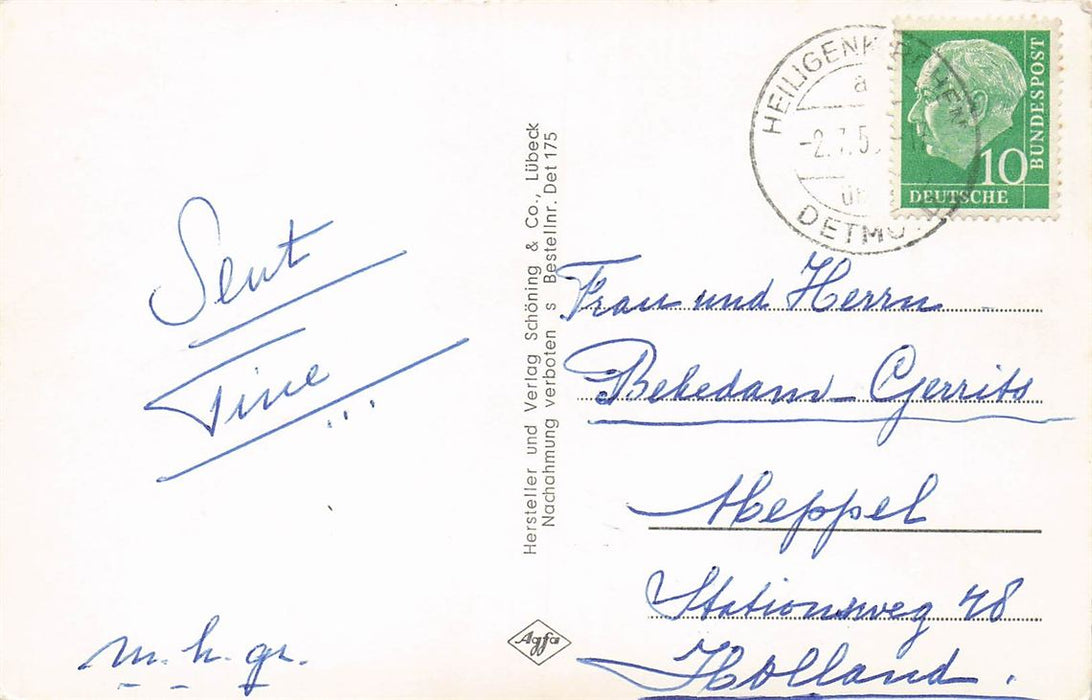 Sent
Tine
m. h. gr.
Hersteller und Verlag Schöning & Co., Lübeck
Nachahmung verboten s Bestellnr. Det 175
Agfa
HEILIGENKIRCHEN
a
-2.7.5
üb
DETMOLD
10
BUNDESPOST
DEUTSCHE
Frau und Herrn
Bekedam-Gerrits
Meppel
Stationsweg 48
Holland.